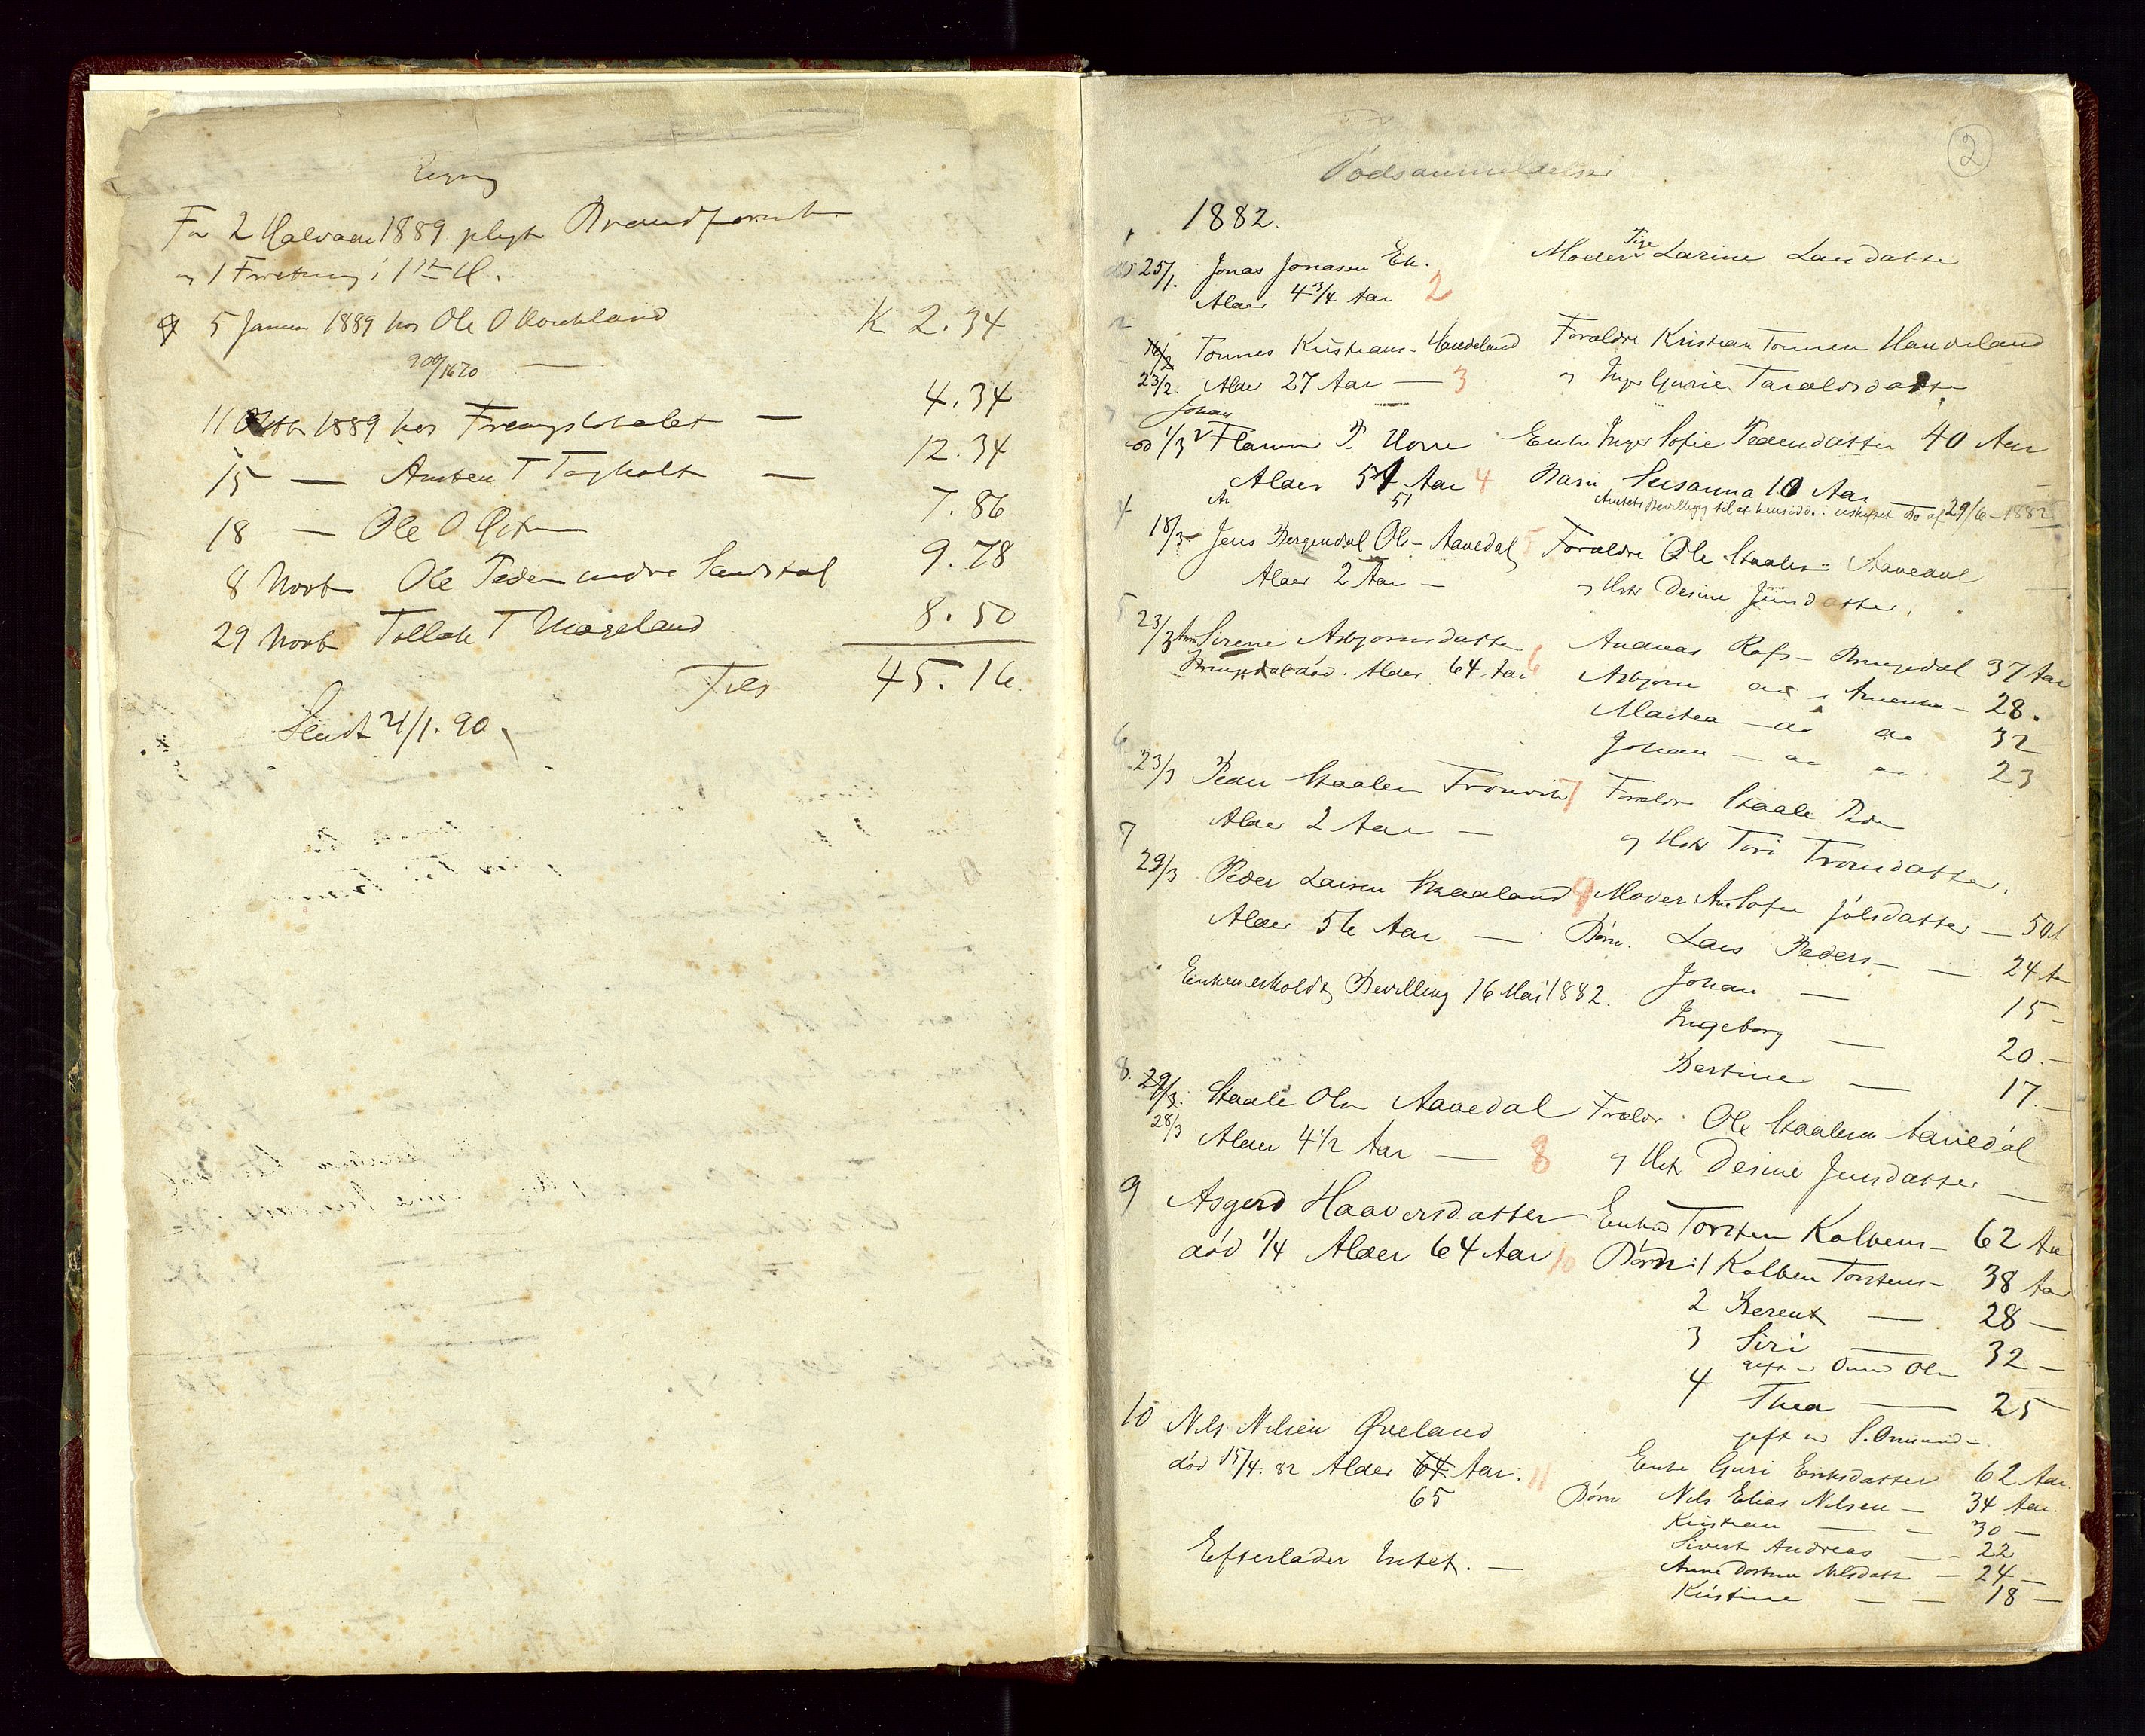 Regng
For 2 Halvaar 1889 Brandforsmt
og 1 Forretning i 1ste H.
5 Januar 1889 hos Ole O K 2.34
4.34
11 Oktb 1889 hos
12.34
15 — T Tagholt —
7.86
18 — Ole O —
9.78
8 Novb Ole Peder indre Sandstøl
8.50
29 Novb Tollak T Mageland
Tils 45.16
Sendt 21/1. 90.
2
Dødsanmeldelser
1882.
død 25/1. Jonas Jonasen Ek. Moder Pige Larine Larsdatter
Alder 4 3/4 Aar 2
2
16/2 Tønnes Kristians- Haudeland Forældre Kristian Tønnesen Haudeland
23/2. Alder 27 Aar — 3 og Inger Gurie Taraldsdatter
3 Johan
død 1/3 Flamm P. Horre Enke Inger Sofie Pedersdatter 40 Aar
Alder 51 Aar 4 Barn Susanna 10 Aar —
51 Amtets Bevilling til at hensidde i uskiftet Bo af 29/6 – 1882
4
18/3 Jens Bergendal Ols- Aavedal 5 Forældre Ole Staalesen Aavedal
Alder 2 Aar — og Hstr Desine Jensdatter.
5
23/3 Anne Sirene Asbjørnsdatter Andreas Rafs- Bringedal 37 Aar
Bringedal død. Alder 64 Aar 6 Asbjørn do i Amerika — 28.
Martea — do do 32
Johan — do do 23
6
23/3 Peder Staalesen Tronvik 7 Forældre Staale Peder
Alder 2 Aar — og Hstr Tori Tronsdatter.
7
29/3 Peder Larsen Skaaland 9 Moder Ane Sofie Jolsdatter — 50 A
Alder 56 Aar — Børn. Lars Peders- — 24 Aa
Johan — 15 –
Enken erholdt Bevilling 16 Mai 1882.
Ingeborg — 20. –
Bertine — 17. –
8. 29/3. Staale Olsen Aavedal Forældr. Ole Staalesen Aavedal
28/3 Alder 4 1/2 Aar — 8 og Hstr Desine Jensdatter —
9 Asgerd Haaversdatter Enkem Torsten Kolbens- 62 Aar
død 1/4 Alder 64 Aar 10 Børn: 1 Kolben Torstens- 38 Aar
2 Berent — 28 —
3 Siri — 32 –
gift m Onund Olsen
4 Thea — 25
gift m S. Omund-
10 Nils Nilsen Øveland
død 15/4. 82 Alder 64 Aar. 11 Enke Guri Eriksdatter 62 Aar.
65 Børn Nils Elias Nilsen — 34 Aar.
Kristian — – 30 —
Sivert Andreas — – 22
Efterlader Intet. — Anne Dortea Nilsdatt — 24 —
Kristine — — 18 —